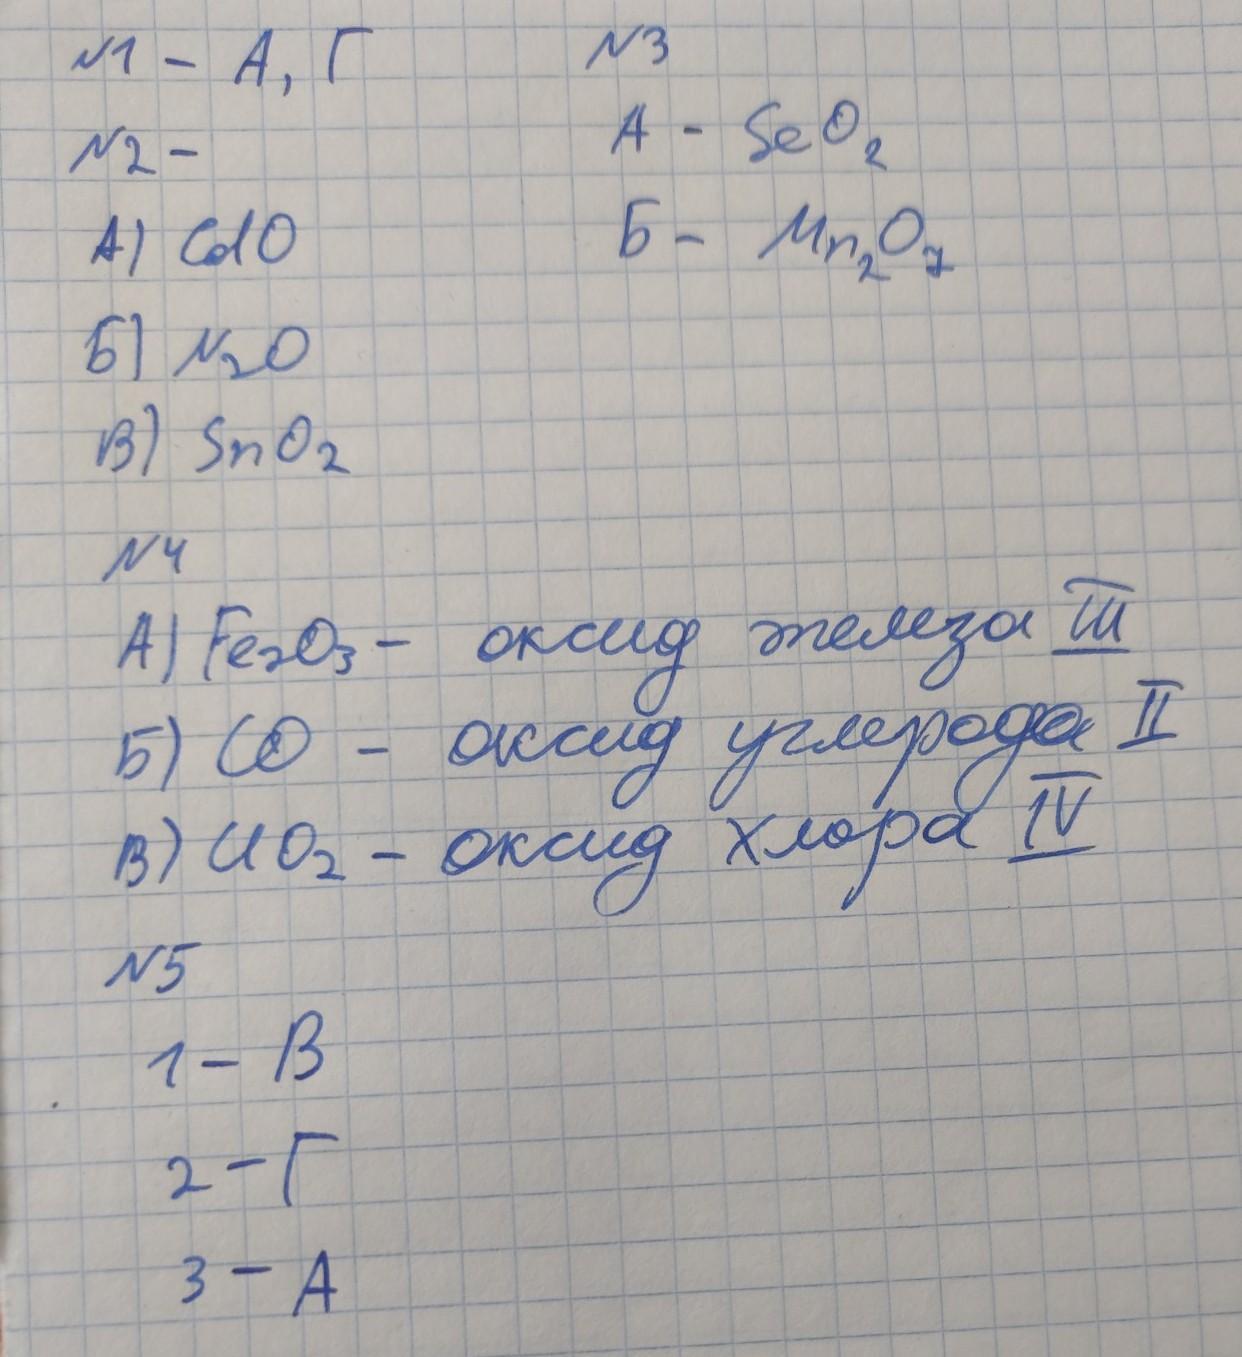 N1 - А, Г
N2 -
А) CdO
Б) N2O
В) SnO2
N3
А - SeO2
Б - Mn2O7
N4
А) Fe2O3 - оксид железа III
Б) CO - оксид углерода II
В) ClO2 - оксид хлора IV
N5
1 - В
2 - Г
3 - А